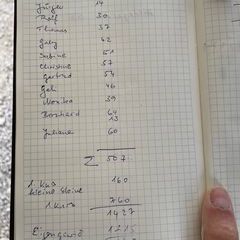 Jürgen 14
Ralf 30
Thomas 37
Gaby 42
Sabine 51
Christine 57
Gertrud 54
Gabi 46
Monika 39
Bernhard 64
13
Juliane 60
Σ 507
1. Kurs 160
kleine kleine
1 Kurs 760
1427
1215